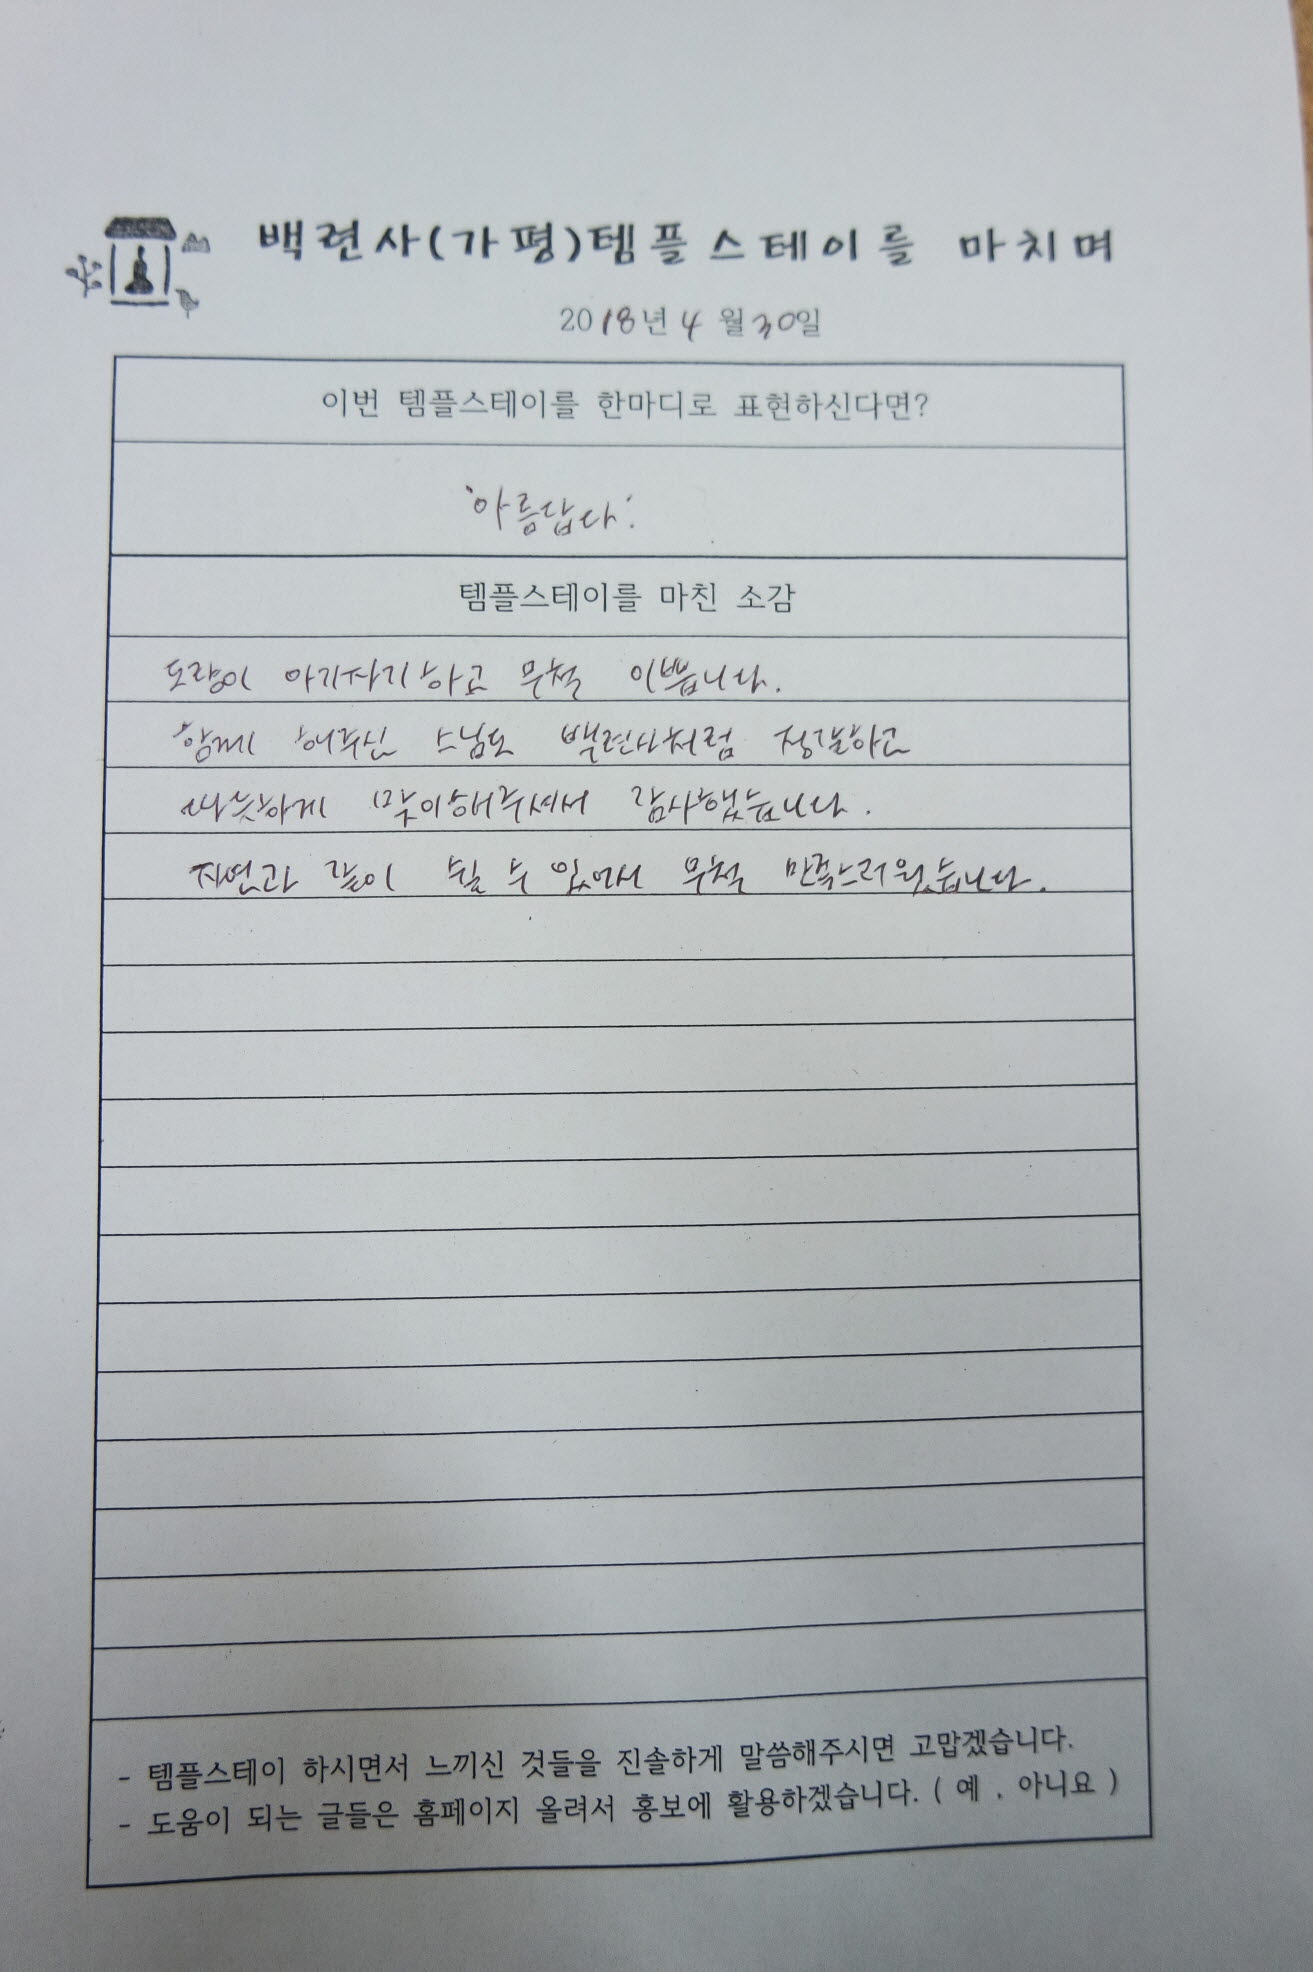 백련사(가평)템플스테이를 마치며
2018년 4월 30일
이번 템플스테이를 한마디로 표현하신다면?
'아름답다'.
템플스테이를 마친 소감
도량이 아기자기하고 무척 이쁩니다.
함께 해주신 스님도 백련사처럼 정갈하고
따뜻하게 맞이해주셔서 감사했습니다.
자연과 같이 쉴 수 있어서 무척 만족스러웠습니다.
- 템플스테이 하시면서 느끼신 것들을 진솔하게 말씀해주시면 고맙겠습니다.
- 도움이 되는 글들은 홈페이지 올려서 홍보에 활용하겠습니다. ( 예 , 아니요 )